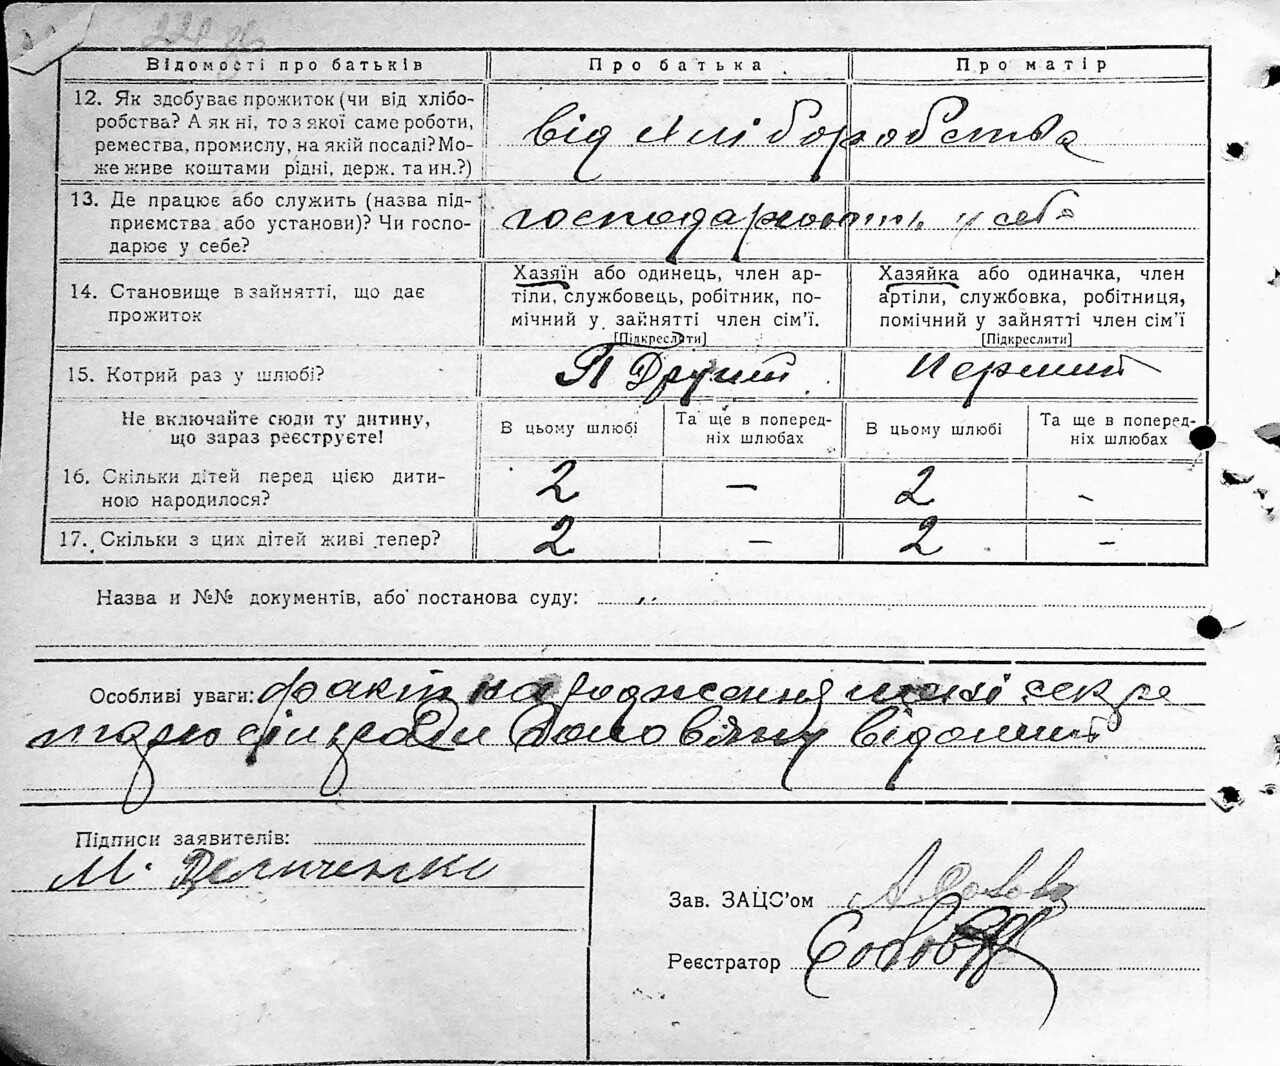 Відомості про батьків Про батька Про матір
12. Як здобуває прожиток (чи від хлібо-
робства? А як ні, то з якої саме роботи,
ремества, промислу, на якій посаді? Мо-
же живе коштами рідні, держ. та ин.?)
від хліборобства
13. Де працює або служить (назва під-
приємства або установи)? Чи госпо-
дарює у себе?
господарюють у себе
14. Становище в зайнятті, що дає
прожиток
Хазяїн або одинець, член ар-
тіли, службовець, робітник, по-
мічний у зайнятті член сім'ї.
[Підкреслити]
Хазяйка або одиначка, член
артіли, службовка, робітниця,
помічний у зайнятті член сім'ї
[Підкреслити]
15. Котрий раз у шлюбі? Другий Перший
Не включайте сюди ту дитину,
що зараз реєструєте!
В цьому шлюбі
Та ще в поперед-
ніх шлюбах
В цьому шлюбі
Та ще в поперед-
ніх шлюбах
16. Скільки дітей перед цією дити-
ною народилося?
2 — 2 -
17. Скільки з цих дітей живі тепер? 2 — 2 —
Назва и №№ документів, або постанова суду:
Особливі уваги: факт народження мені секре
тарю сільради відомий
Підписи заявителів:
М.
Зав. ЗАЦС'ом
Реєстратор